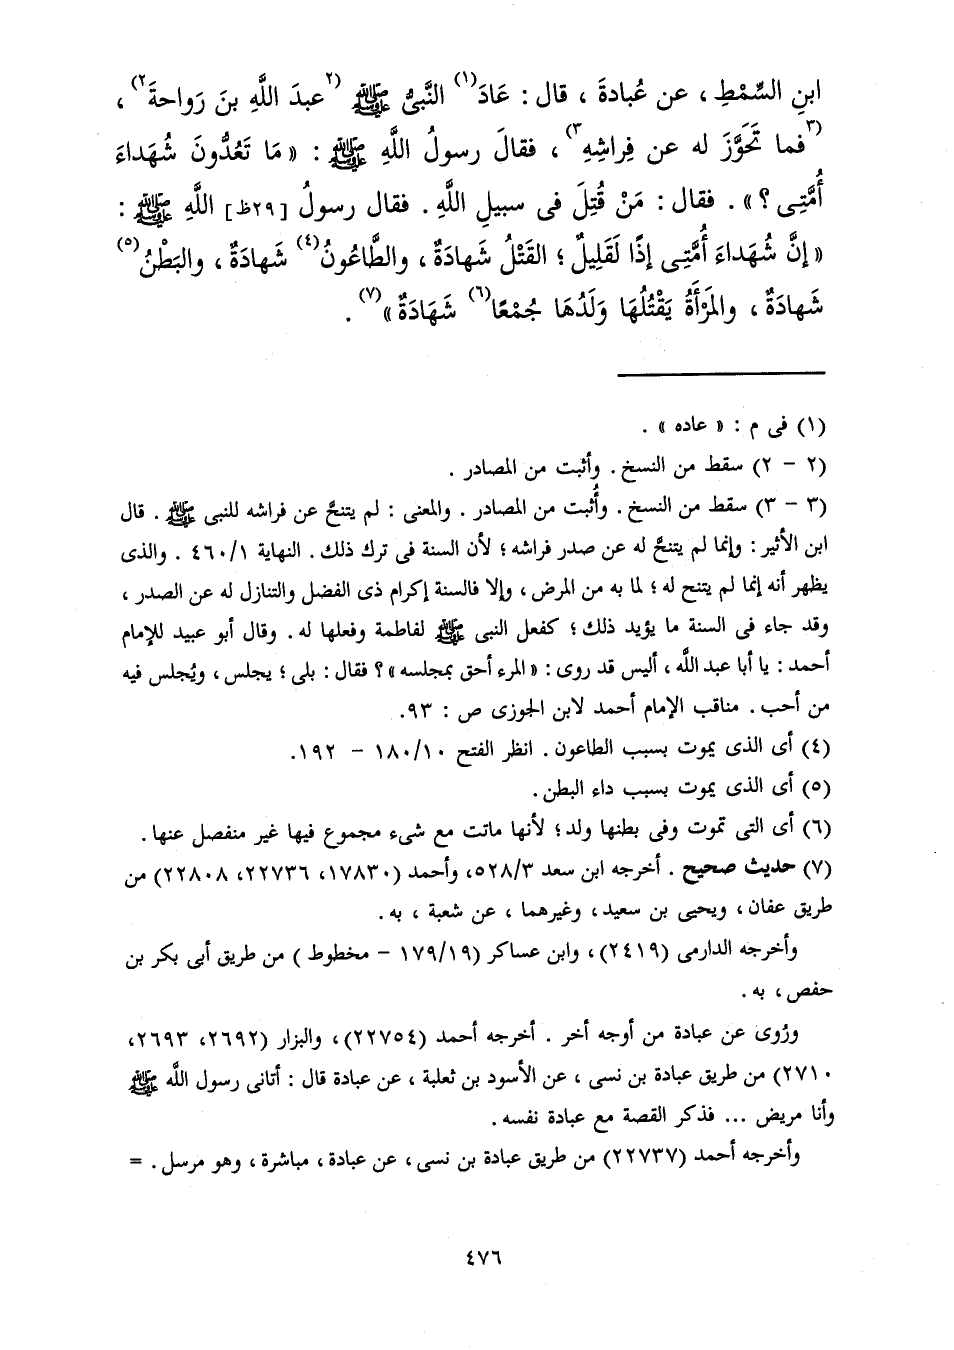 ابنِ السِّمْطِ ، عن عُبادةَ ، قال : عَادَ(١) النَّبىُّ ﷺ (٢عبدَ اللَّهِ بنَ رَواحةَ٢) ،
(٣فما تَحَوَّزَ له عن فِراشِهِ٣) ، فقالَ رسولُ اللَّهِ ﷺ : « مَا تَعُدُّونَ شُهَداءَ
أُمَّتِى ؟ » . فقال : مَنْ قُتِلَ فى سبيلِ اللَّهِ . فقال رسولُ [٢٩ظ] اللَّهِ ﷺ :
« إنَّ شُهَداءَ أُمَّتِى إذًا لَقَلِيلٌ ؛ القَتْلُ شَهادَةٌ ، والطَّاعُونُ(٤) شَهادَةٌ ، والبَطْنُ(٥)
شَهادَةٌ ، والمَرْأَةُ يَقْتُلُهَا وَلَدُهَا جُمْعًا(٦) شَهَادَةٌ »(٧) .
(١) فى م : « عاده » .
(٢ - ٢) سقط من النسخ . وأثبت من المصادر .
(٣ - ٣) سقط من النسخ . وأُثبت من المصادر . والمعنى : لم يتنحَّ عن فراشه للنبى ﷺ . قال
ابن الأثير : وإنما لم يتنحَّ له عن صدر فراشه ؛ لأن السنة فى ترك ذلك . النهاية ٤٦٠/١ . والذى
يظهر أنه إنما لم يتنح له ؛ لما به من المرض ، وإلا فالسنة إكرام ذى الفضل والتنازل له عن الصدر ،
وقد جاء فى السنة ما يؤيد ذلك ؛ كفعل النبى ﷺ لفاطمة وفعلها له . وقال أبو عبيد للإمام
أحمد : يا أبا عبد اللَّه ، أليس قد روى : « المرء أحق بمجلسه » ؟ فقال : بلى ؛ يجلس ، ويُجلس فيه
من أحب . مناقب الإمام أحمد لابن الجوزى ص : ٩٣.
(٤) أى الذى يموت بسبب الطاعون . انظر الفتح ١٨٠/١٠ - ١٩٢.
(٥) أى الذى يموت بسبب داء البطن .
(٦) أى التى تموت وفى بطنها ولد ؛ لأنها ماتت مع شىء مجموع فيها غير منفصل عنها .
(٧) حديث صحيح . أخرجه ابن سعد ٥٢٨/٣، وأحمد (١٧٨٣٠، ٢٢٧٣٦، ٢٢٨٠٨) من
طريق عفان ، ويحيى بن سعيد ، وغيرهما ، عن شعبة ، به .
وأخرجه الدارمى (٢٤١٩)، وابن عساكر (١٧٩/١٩ - مخطوط ) من طريق أبى بكر بن
حفص ، به .
ورُوى عن عبادة من أوجه أخر . أخرجه أحمد (٢٢٧٥٤)، والبزار (٢٦٩٢، ٢٦٩٣،
٢٧١٠) من طريق عبادة بن نسى ، عن الأسود بن ثعلبة ، عن عبادة قال : أتانى رسول اللَّه ﷺ
وأنا مريض ... فذكر القصة مع عبادة نفسه .
وأخرجه أحمد (٢٢٧٣٧) من طريق عبادة بن نسى ، عن عبادة ، مباشرة ، وهو مرسل . =
٤٧٦